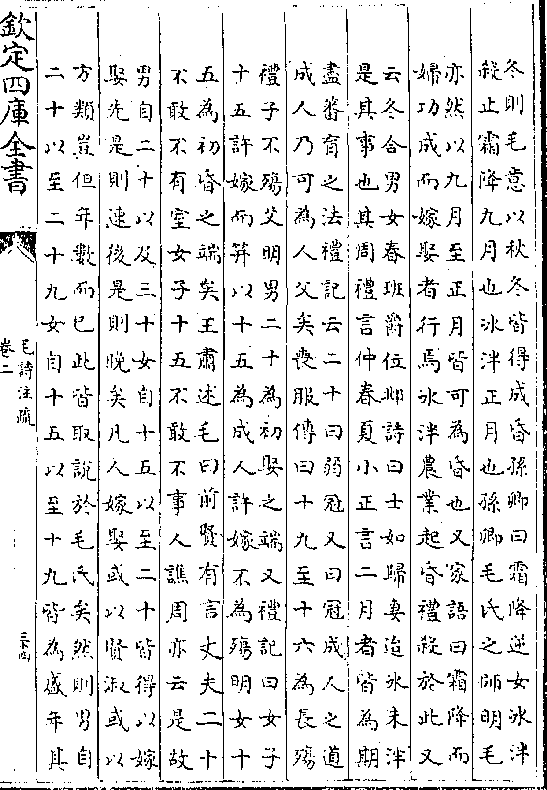 冬則毛意以秋冬皆得成昏孫卿曰霜降逆女冰泮
殺止霜降九月也冰泮正月也孫卿毛氏之師明毛
亦然以九月至正月皆可為昏也又家語曰霜降而
婦功成而嫁娶者行焉冰泮農業起昏禮殺於此又
云冬合男女春班爵位邶詩曰士如歸妻迨冰未泮
是其事也其周禮言仲春夏小正言二月者皆為期
盡蕃育之法禮記云二十曰弱冠又曰冠成人之道
成人乃可為人父矣喪服傳曰十九至十六為長殤
禮子不殤父明男二十為初娶之端又禮記曰女子
十五許嫁而笄以十五為成人許嫁不為殤明女十
五為初昏之端矣王肅述毛曰前賢有言丈夫二十
不敢不有室女子十五不敢不事人譙周亦云是故
男自二十以及三十女自十五以至二十皆得以嫁
娶先是則速後是則晚矣凡人嫁娶或以賢淑或以
方類豈但年數而已此皆取說於毛氏矣然則男自
二十以至二十九女自十五以至十九皆為盛年其
欽定四庫全書
毛詩注疏
卷二
三十四